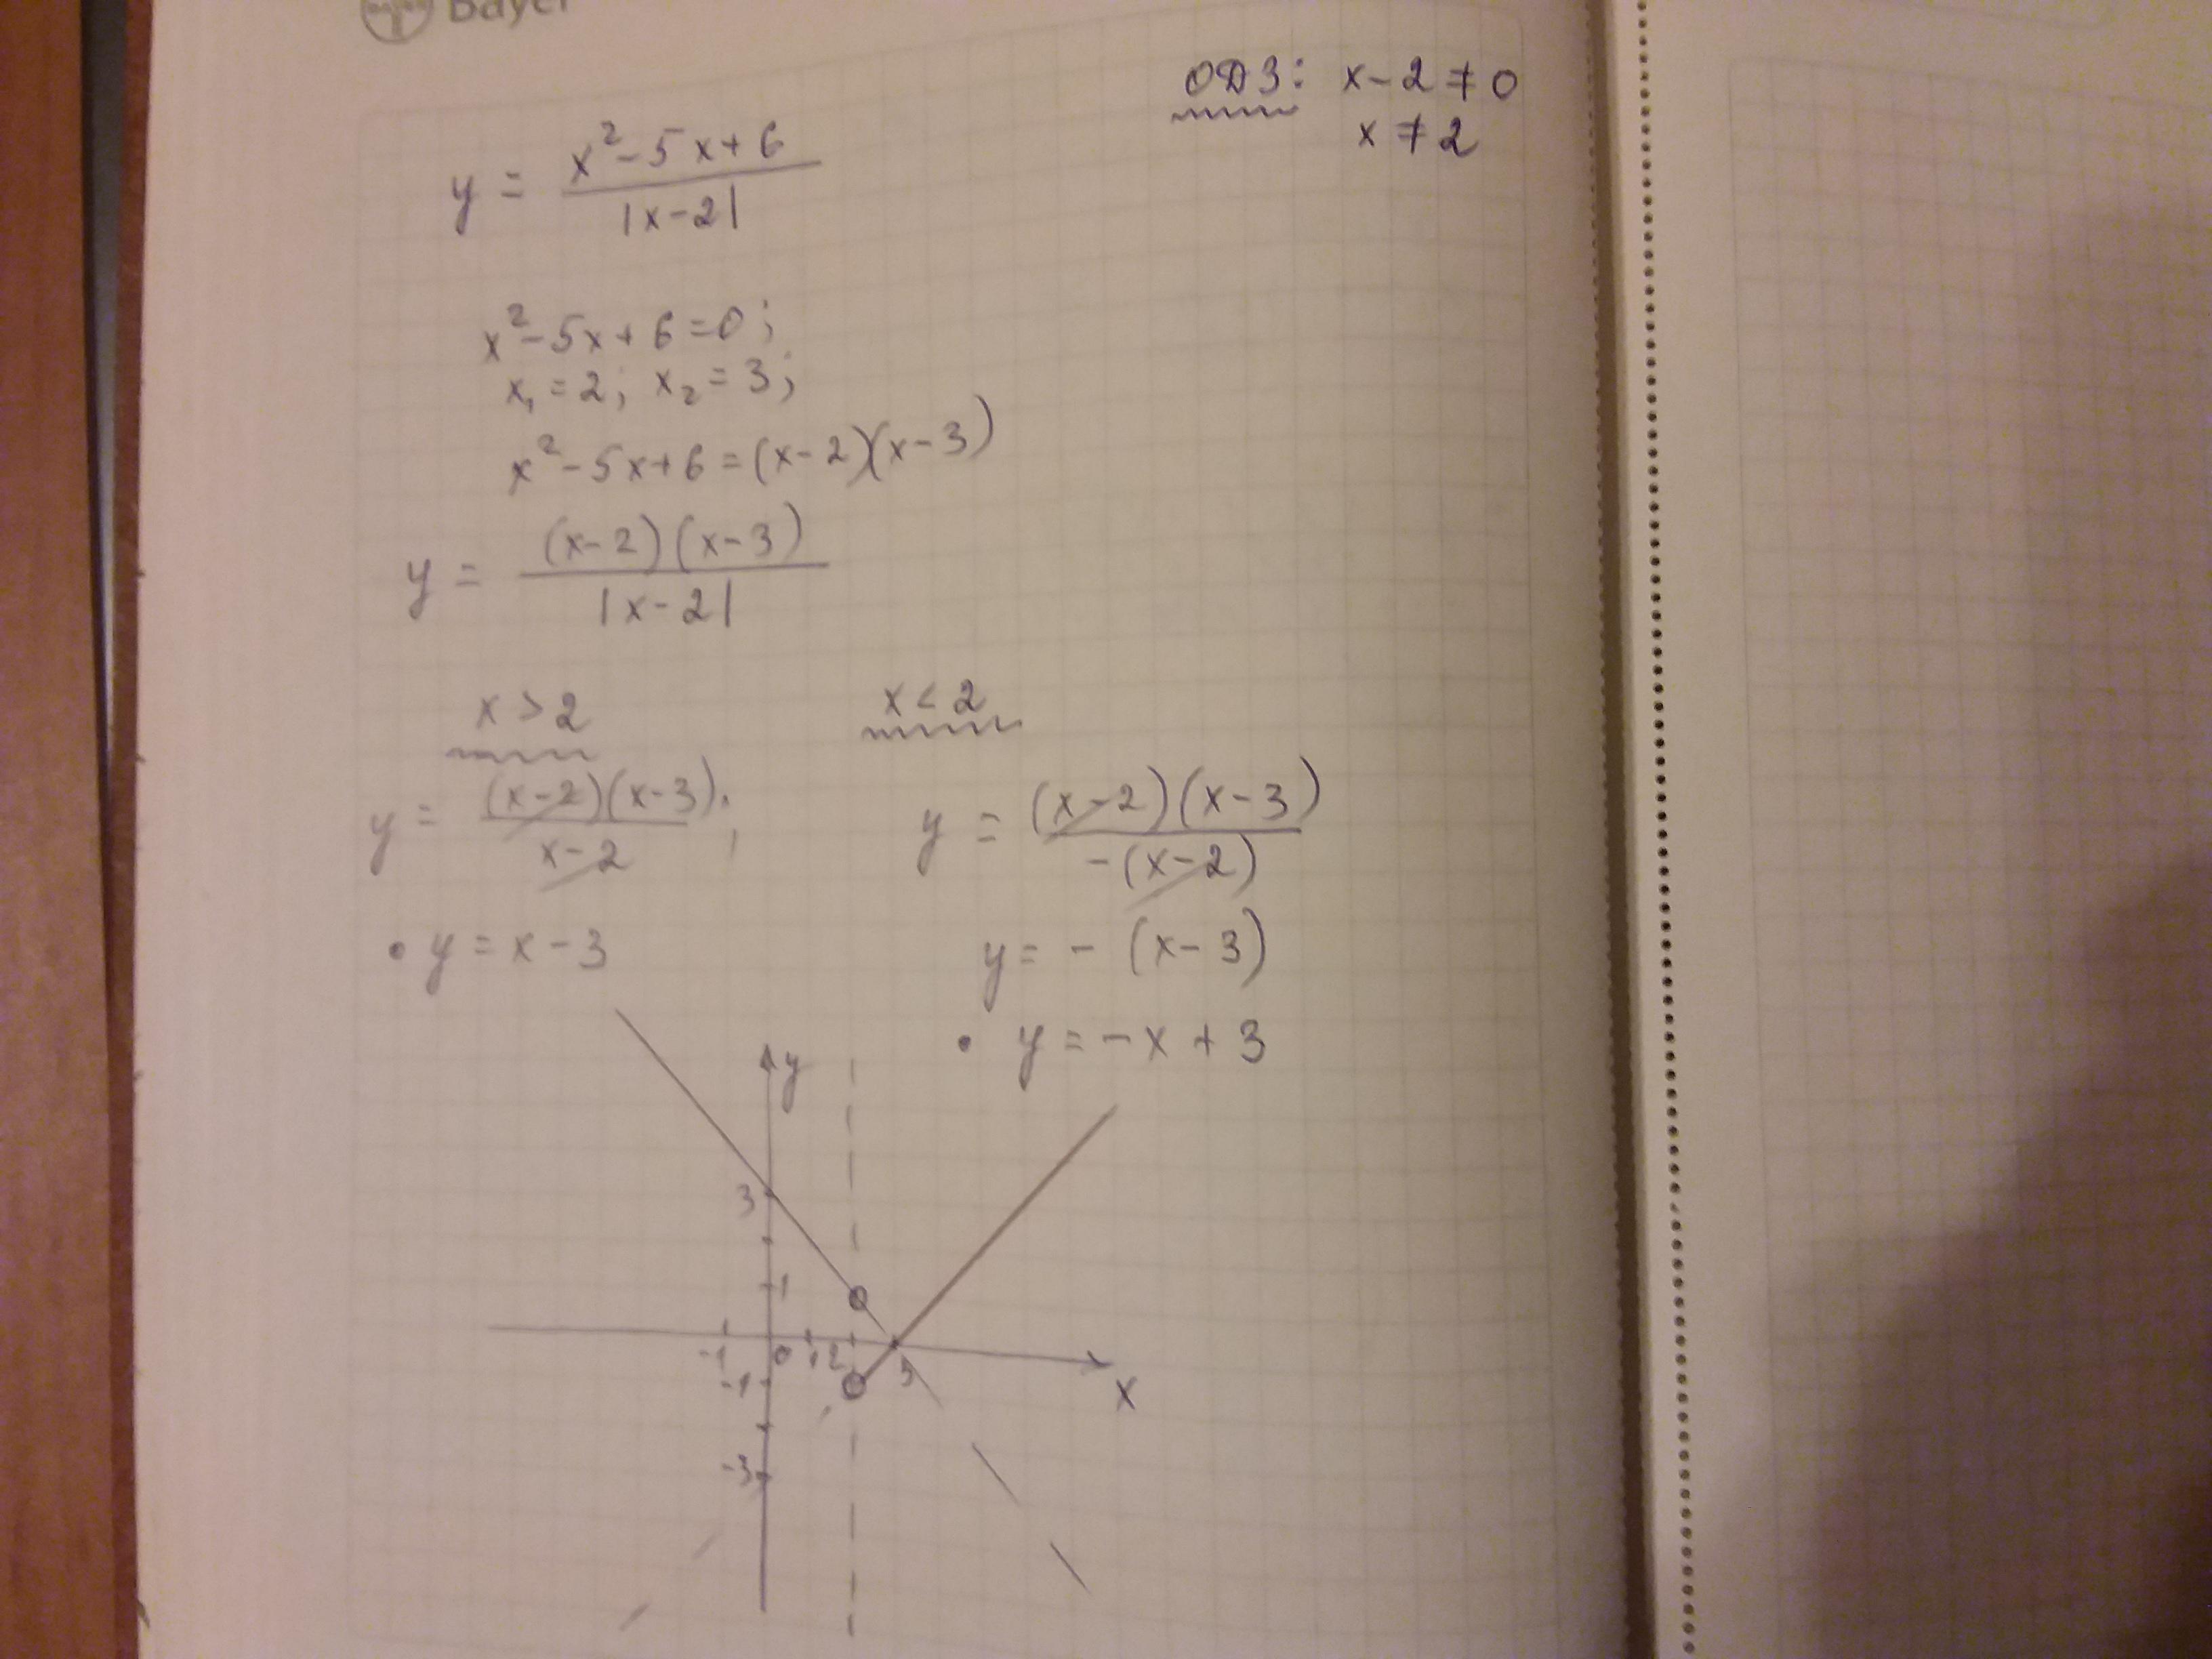 Bayer
ОДЗ: x-2≠0
x≠2
y = (x²-5x+6)/|x-2|
x²-5x+6=0;
x₁=2; x₂=3;
x²-5x+6=(x-2)(x-3)
y = ((x-2)(x-3))/|x-2|
x>2
x<2
y = ((x-2)(x-3))/(x-2);
y = ((x-2)(x-3))/(-(x-2))
• y=x-3
y=-(x-3)
• y=-x+3
y
3
1
-1 0 1 2 3
x
-1
-3